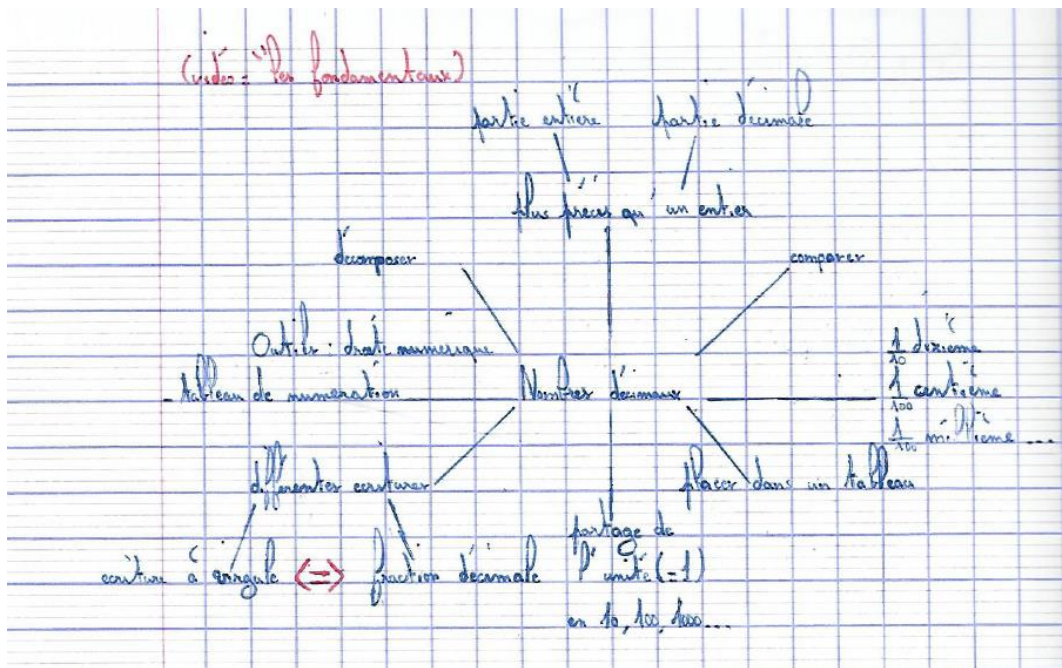 (vidéo = "les fondamentaux)
partie entière partie décimale
plus précis qu'un entier
décomposer comparer
Outils : droite numérique
- tableau de numération
Nombres décimaux
1/10 dixième
1/100 centième
1/100 millième ...
différentes ecritures
placer dans un tableau
ecriture à virgule <=> fraction décimale
partage de
l'unité (=1)
en 10, 100, 1000...